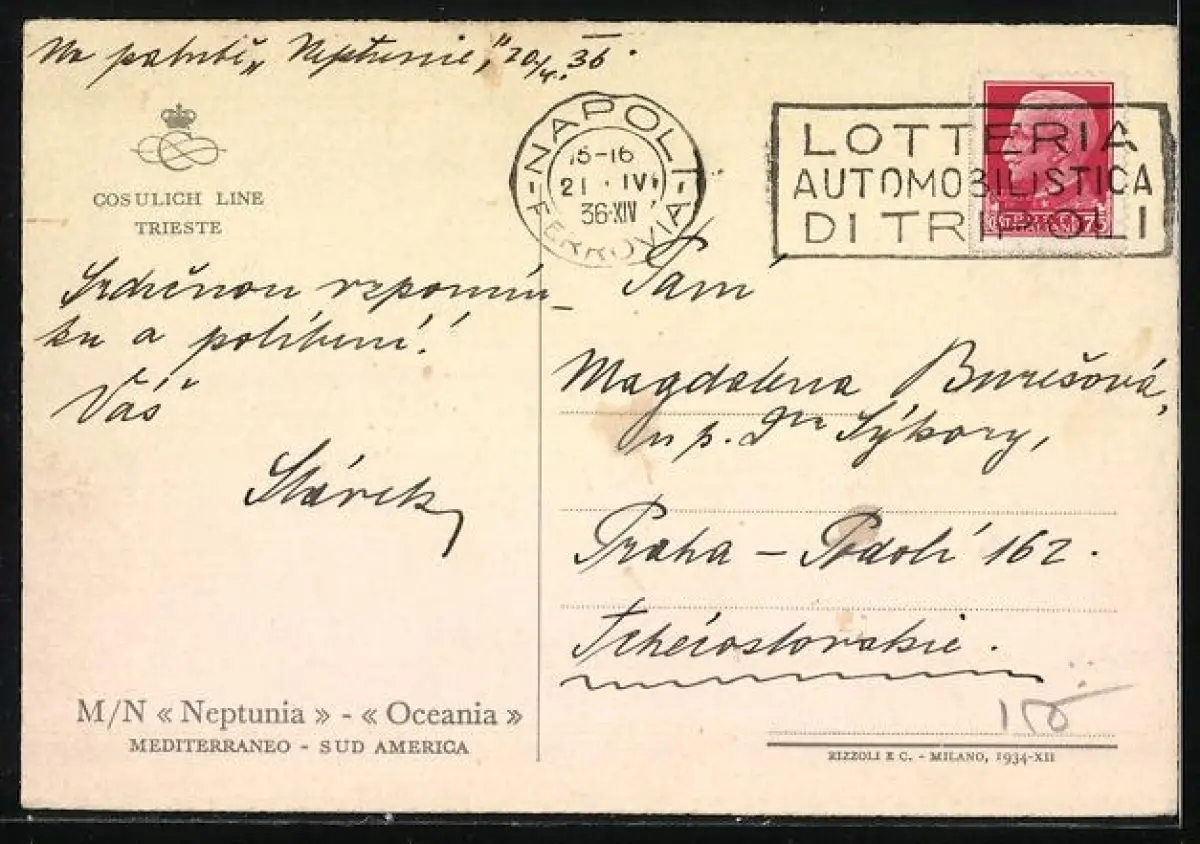 Na palubě „Neptunie", 20/4. 36.
COSULICH LINE
TRIESTE
NAPOLI
15-16
21 · IV
36·XIV
FERROVIA
LOTTERIA
AUTOMOBILISTICA
DI TRIPOLI
75
Srdečnou vzpomín-
ku a políbení!
Váš
Slávek
Paní
Magdalena Burešová,
u p. Dra Sýkory,
Praha – Podolí 162.
Tchécoslovakie.
150
M/N « Neptunia » - « Oceania »
MEDITERRANEO - SUD AMERICA
RIZZOLI E C. - MILANO, 1934-XII